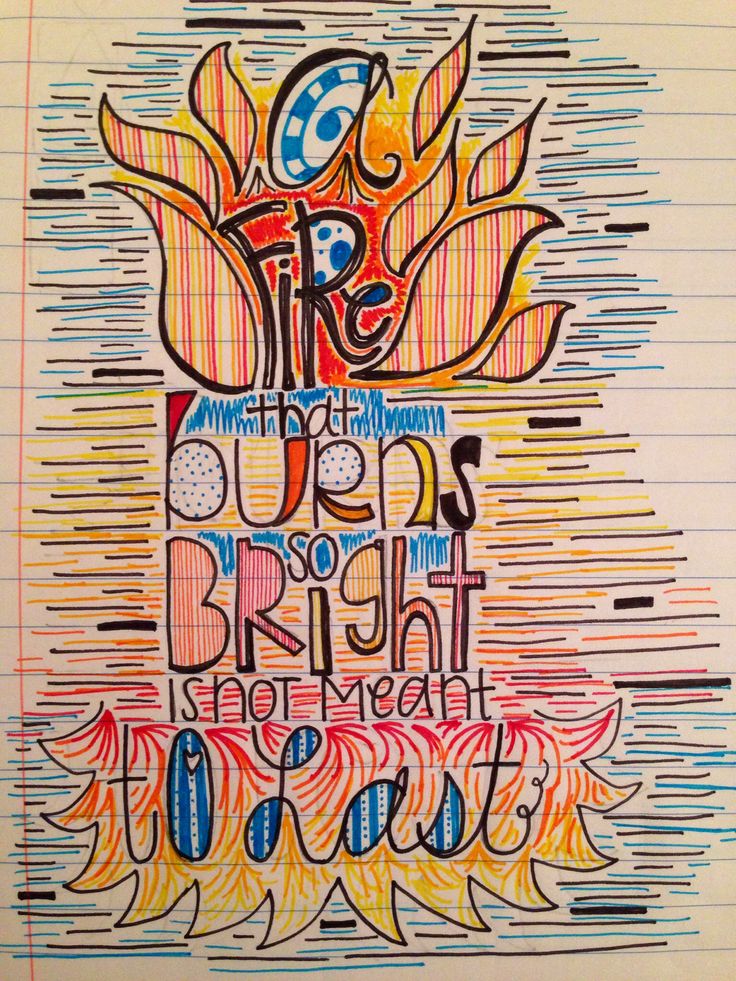 a
FiRe
that
burns
so
BRight
is not Meant
to Last